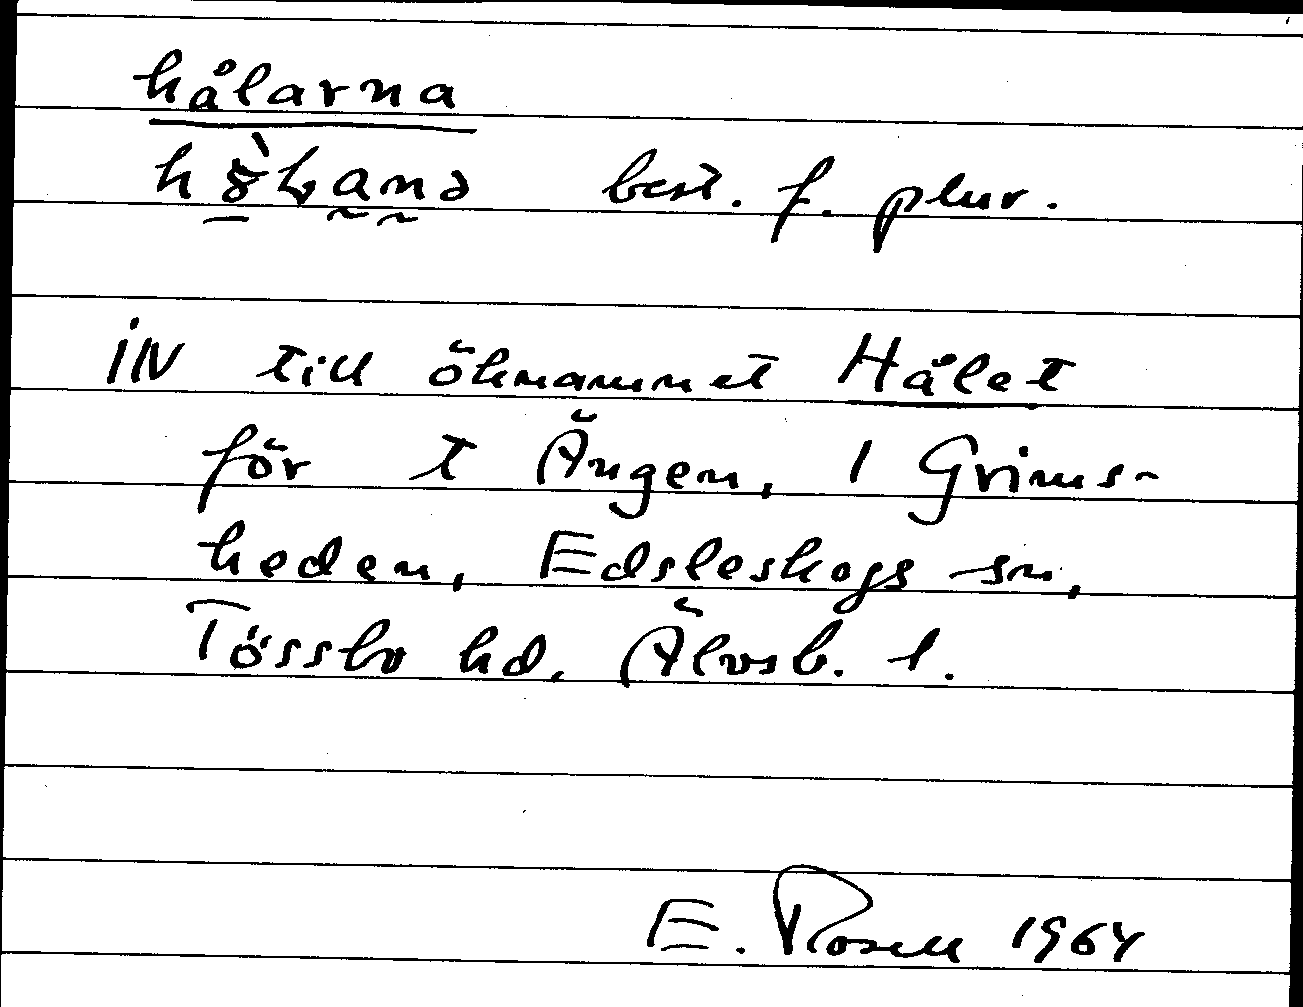 hålarna
best. f. plur.
IN till öknamnet Hålet
för t Ängen, 1 Grims-
heden, Edsleskogs sn,
Tössbo hd. Älvsb. l.
E. Rosell 1964